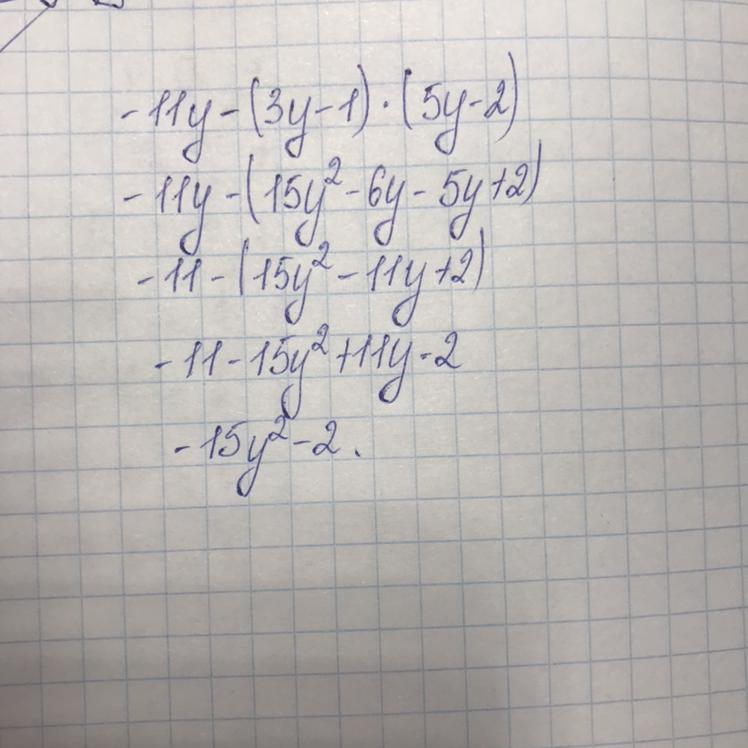 -11y-(3y-1)·(5y-2)
-11y-(15y²-6y-5y+2)
-11-(15y²-11y+2)
-11-15y²+11y-2
-15y²-2.